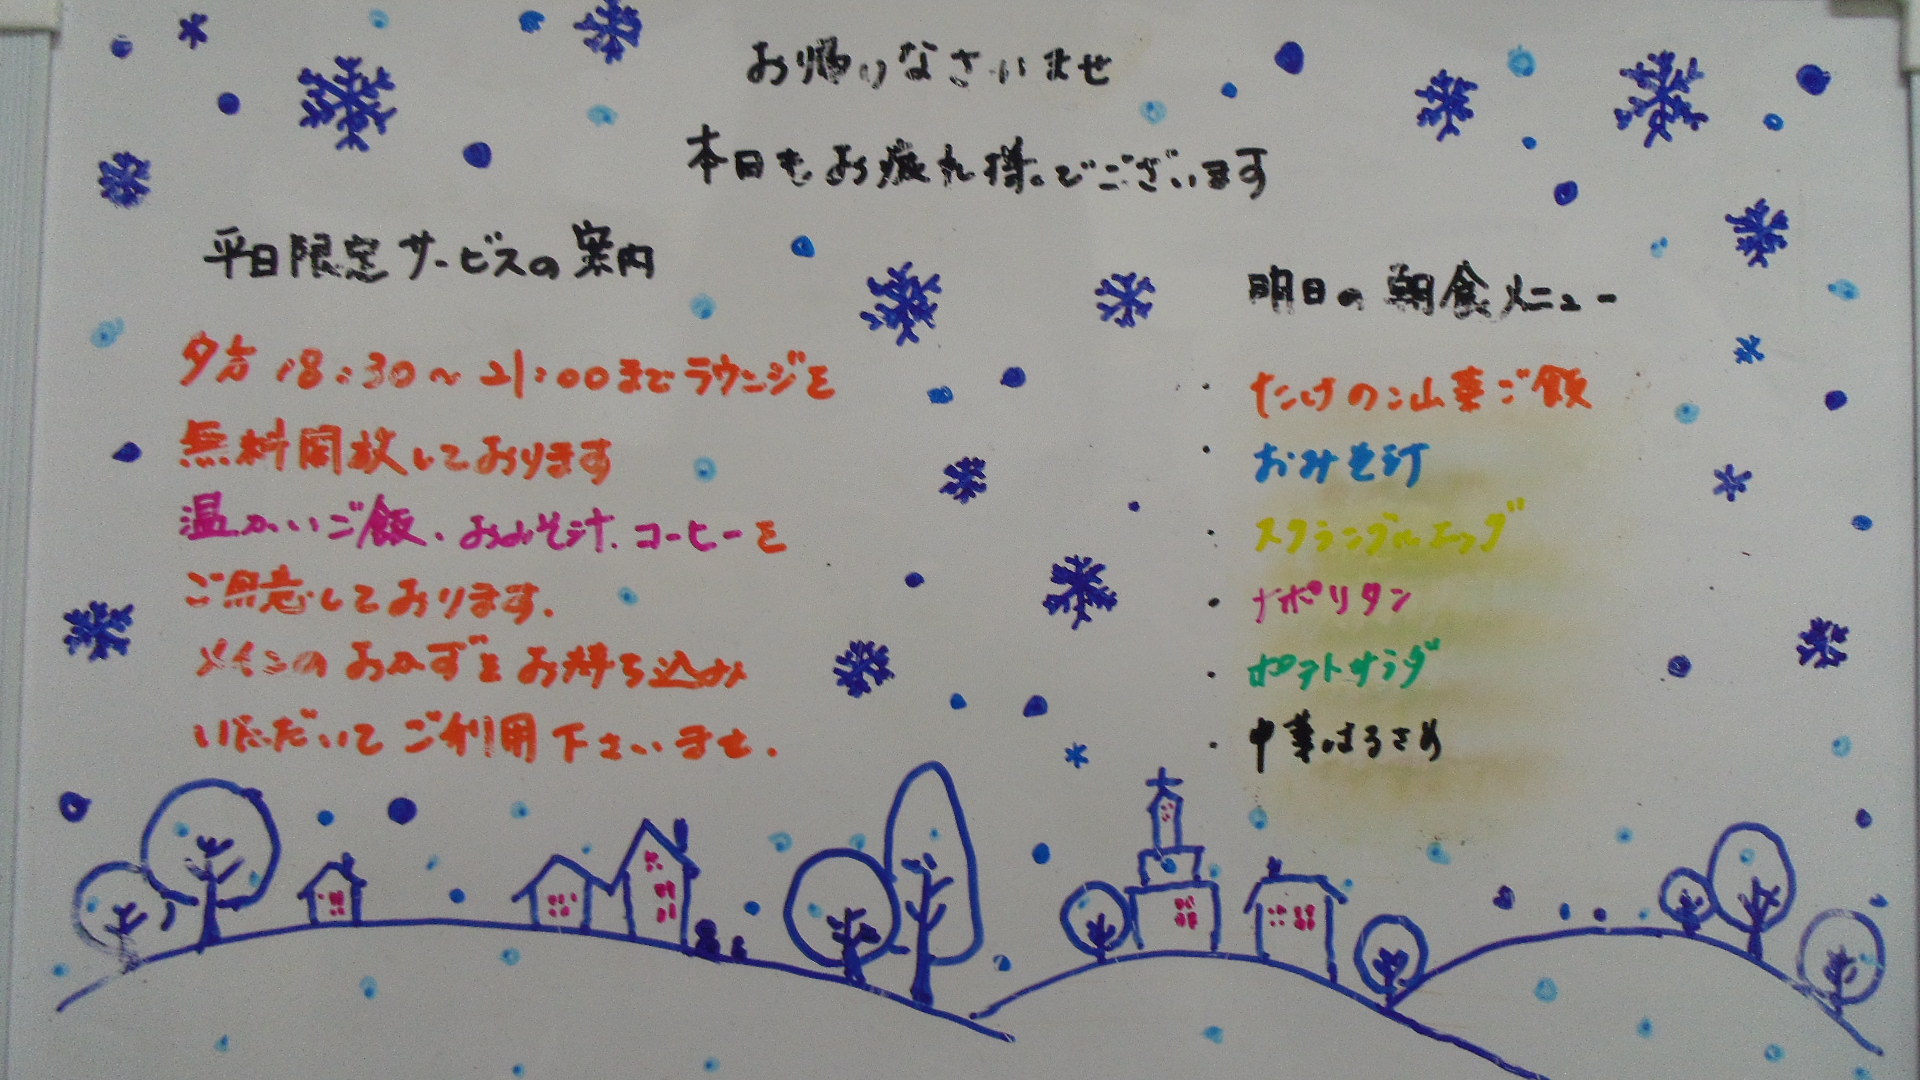 お帰りなさいませ
本日もお疲れ様でございます
平日限定サービスの案内
夕方18:30～21:00までラウンジを
無料開放しております
温かいご飯、おみそ汁、コーヒーを
ご用意しております.
メインのおかずをお持ち込み
いただいてご利用下さいませ.
明日の朝食メニュー
・たけのこ山菜ご飯
・おみそ汁
・スクランブルエッグ
・ナポリタン
・ポテトサラダ
・中華はるさめ